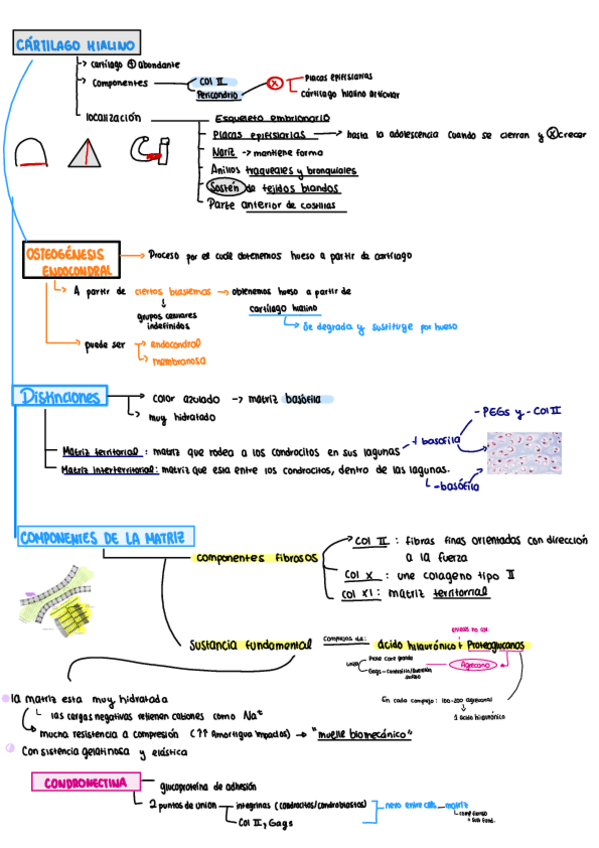 CÁRTILAGO HIALINO
→ cartílago ⊕ abundante
→ componentes
COl II
Pericondrio
X
Placas epifisiarias
cártilago hialino articular
localización
Esqueleto embrionario
Placas epifisiarias → hasta la adolescencia cuando se cierran y X crecer
Nariz → mantiene forma
Anillos traqueales y bronquiales
Sostén de tejidos blandos
Parte anterior de costillas
OSTEOGÉNESIS
ENDOCONDRAL
→ Proceso por el cual obtenemos hueso a partir de cartílago
A partir de ciertos blastemas → obtenemos hueso a partir de
cartílago hialino
grupos celulares
indefinidos
Se degrada y sustituye por hueso
puede ser
→ endocondral
→ membranosa
Distinciones
color azulado → matriz basófila
muy hidratado
- PEGs y - COl II
Matriz territorial : matriz que rodea a los condrocitos en sus lagunas
+ basófila
Matriz interterritorial: matriz que esta entre los condrocitos, dentro de las lagunas.
- basófila
COMPONENTES DE LA MATRIZ
componentes fibrosos
COl II : fibras finas orientadas con dirección
a la fuerza
COl X : une colageno tipo II
COl XI : matriz territorrial
Sustancia fundamental
complejos de:
ácido hilaurónico + Proteoglucanos
Agrecano
En cada complejo: 100-200 agrecanos
1 ácido hilaurónico
la matriz esta muy hidratada
las cargas negativas retienen cationes como Na+
mucha resistencia a compresión (↑↑ Amortigua impactos) → "muelle biomecánico"
Consistencia gelatinosa y elástica
CONDRONECTINA
glucoproteína de adhesión
2 puntos de union
integrinas (condrocitos/condroblastos)
COl II, Gags
nexo entre cels - matriz